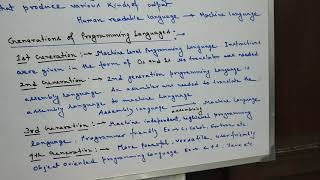 that produce various kinds of output
Human readable language → Machine language
Generations of Programming Languages:-
1st Generation:- Machine level Programming language. Instructions
were given in the form of 0s and 1s. No translator was needed
2nd Generation:- 2nd generation programming language is
assembly language. An assembler was needed to translate the
assembly language to machine language.
Assembly language assembler Machine language
3rd Generation:- Machine independent, high level programming
language. Programmer friendly Ex → C, Cobol, Fortran etc
4th Generation:- More Powerful, versatile, User friendly
Object oriented programming language Ex → C++, Java etc